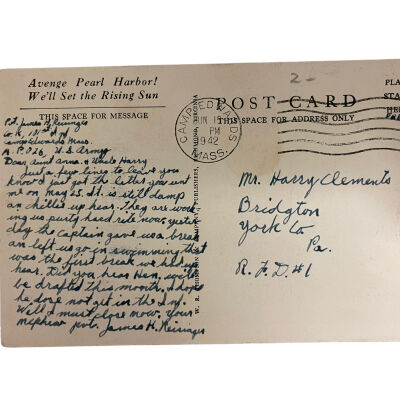 Avenge Pearl Harbor!
We'll Set the Rising Sun
THIS SPACE FOR MESSAGE
2-
POST CARD
THIS SPACE FOR ADDRESS ONLY
PLA
STA
HE
CAMP EDWARDS
JUN 1
PM
1942
MASS.
Pvt. James H. Reisinger
Co. K, 181st Inf
Camp Edwards Mass.
A.P.O 26, U.S Army
Dear aunt anna & Uncle Harry
Just a few lines to leave you
know I just got the letter you sent
me on May 25. It is still damp
an chilles up hear. They are work
ing us purty hard rite now, yester
day the Captain gave us a break
an left us go in swimming that
was the first break we had up
hear. Did you hear Hen, will
be drafted this mounth. I hope
he dose not get in the Inf.
Well I must close now, your
nephew pvt. James H. Reisinger
Mr. Harry Clements
Bridgton
York Co
Pa.
R. F. D. #1